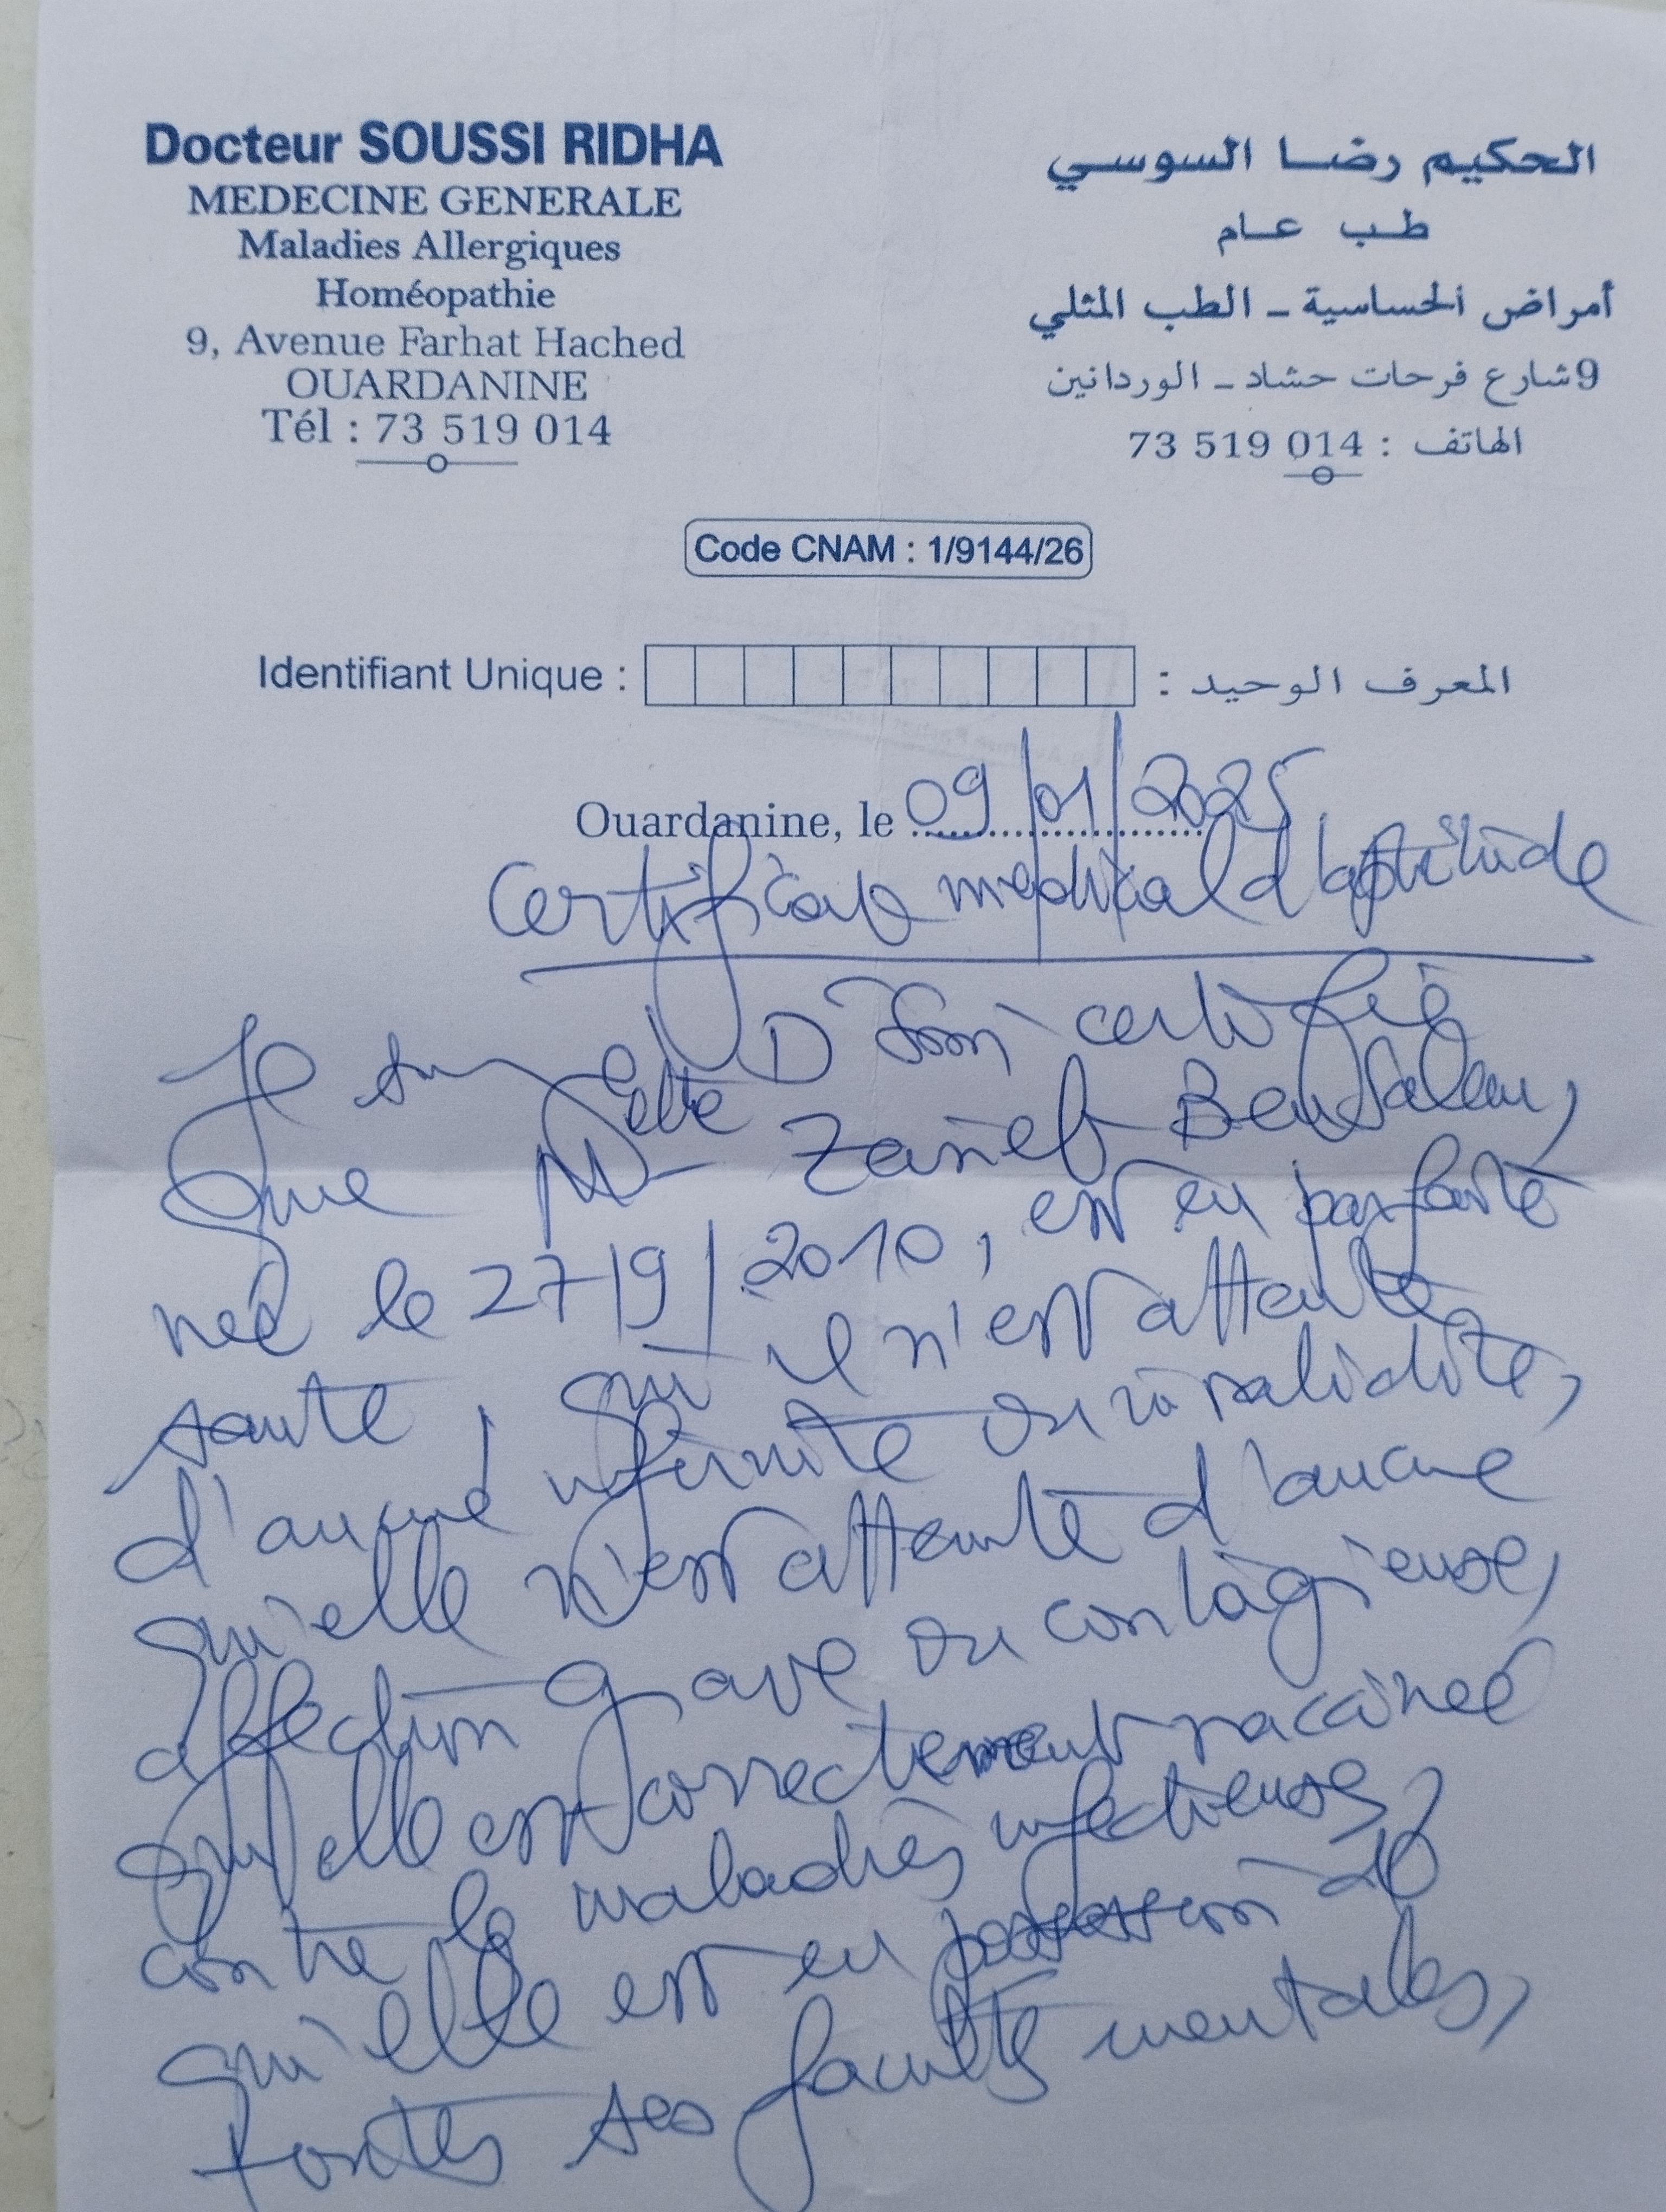 Docteur SOUSSI RIDHA
MEDECINE GENERALE
Maladies Allergiques
Homéopathie
9, Avenue Farhat Hached
OUARDANINE
Tél : 73 519 014
الحكيم رضا السوسي
طب عام
أمراض الحساسية - الطب المثلي
9 شارع فرحات حشاد - الوردانين
الهاتف : 73 519 014
Code CNAM : 1/9144/26
Identifiant Unique : المعرف الوحيد :
Ouardanine, le 09/01/2025
Certificat medical d'aptitude
Je D certifie
que Melle Zaineb Ben Salem,
neé le 27/9/2010, est en parfaite
santé, qu'il n'est atteinte
d'aucune infirmité ou invalidité,
qu'elle n'est atteinte d'aucune
affection grave ou contagieuse,
qu'elle est correctement vaccinée
contre les maladies infectieuses,
qu'elle est en possession de
toutes ses facultés mentales,